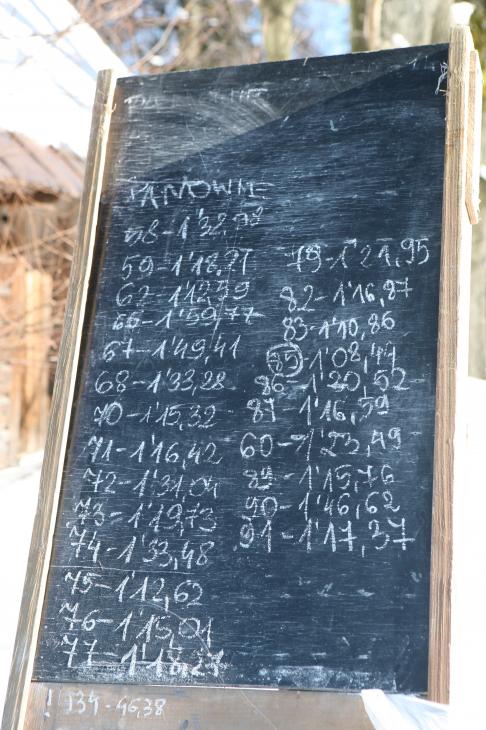 PANOWIE
58-1'32,98
59-1'18,21
62-1'12,59
66-1'59,77
67-1'49,41
68-1'33,28
70-1'15,32
71-1'16,42
72-1'31,04
73-1'19,73
74-1'33,48
75-1'12,62
76-1'15,01
77-1'18,27
79-1'21,95
82-1'16,87
83-1'10,86
85-1'08,41
86-1'20,52
87-1'16,59
60-1'23,49
89-1'15,76
90-1'46,62
91-1'17,37
! 134-46,38